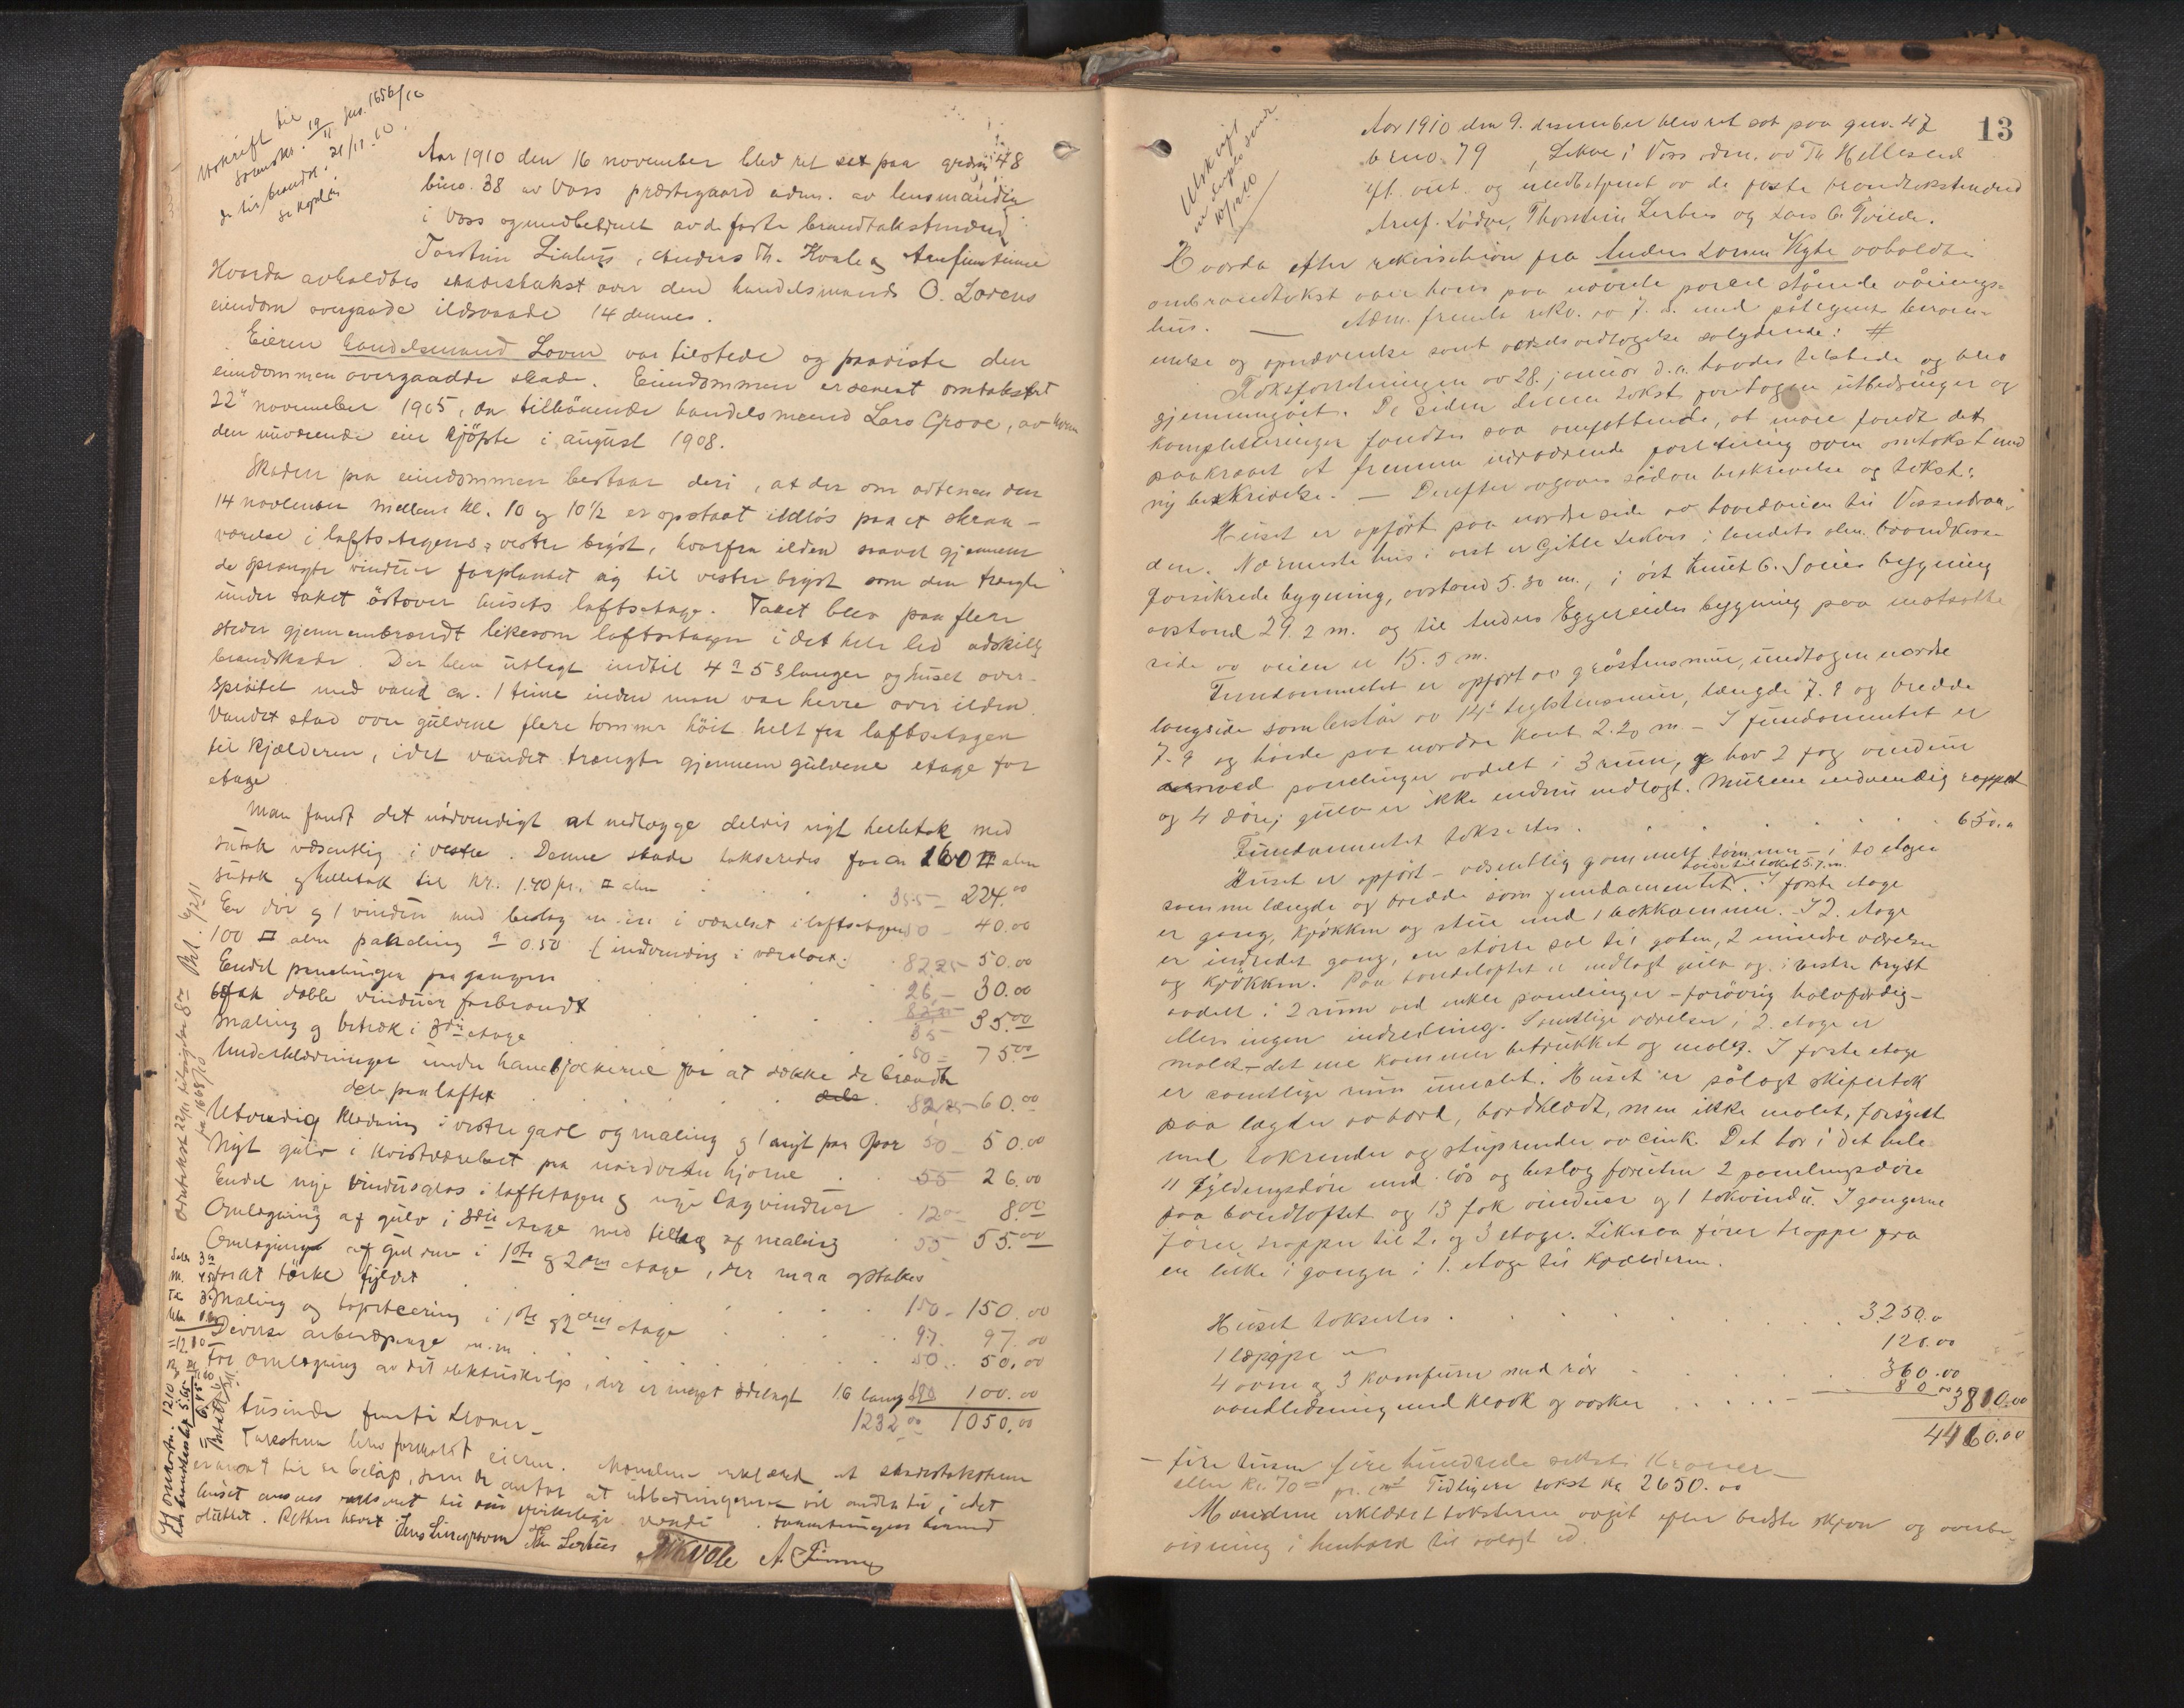 Utskrift til
sorenskr. 19/11 jno. 1656/10
do til brandk. 21/11.10.
Aar 1910 den 16 november blev ret sat paa gaardsno. 48
bno. 38 av Voss præstegaard adm. av lensmanden
i Voss og medbetjent av de faste brandtakstmænd
Torstein Lirhus, Anders Th. Kvale og Arnfin Finne
Hvorda avholdtes skadestakst over den handelsmand O. Lovens
eiendom overgaaede ildsvaade 14 dennes.
Eieren handelsmand Loven var tilstede og paaviste den
eiendommen overgaaede skade. Eiendommen er senest omtakstert
22de november 1905, da tilhörende handelsmand Lars Grove, av hvem
den nuværende eier kjöpte i august 1908.
Skaden paa eiendommen bestaar deri, at der om aftenen den
14 november mellem kl. 10 og 10½ er opstaat ildlös paa et skraa-
værelse i loftsetagens vestre bryst, hvorfra ilden saavel gjennem
de sprængte vinduer forplantet sig til vestre bryst som den trængte
under taket östover husets loftsetage. Taket blev paa flere
steder gjennembrændt likesom loftsetagen i det hele led adskillig
brandskade. Der blev utlagt indtil 4 à 5 slanger og huset over-
spröitet med vand ca. 1 time inden man var herre over ilden.
Vandet stod over gulvene flere tommer höit helt fra loftsetagen
til kjælderen, idet vandet trængte gjennem gulvene etage for
etage.
Man fandt det nödvendigt at nedlægge delvis nyt helletak med
sutak væsentlig i vestre. Denne skade takseredes for ca 160 □ alen
sutak og helletak til kr. 1.40 pr. □ alen . . . 355 – 224.00
En dör og 1 vindu med beslag m.m. i værelset i loftsetagen 50 – 40.00
100 □ alen paneling à 0.50 (indvendig i værelset) . 82.25 50.00
Endel panelinger paa gangen . . . 26.– 30.00
6 fak doble vinduer forbrændt . . . 35 35.00
Maling og betræk i 3die etage . . . 50 – 75.00
Underklædninger under hanebjelkerne for at dække de brændte
dele paa loftet . . . 82.25 60.00
Utvendig klædning i vestre gavl og maling og 1 nyt par spær 50 – 50.00
Nyt gulv i kvistværelset paa nordvestre hjörne . . 55 26.00
Endel nye vindusglas i loftetagen og nye lagvinduer . 12 – 8.00
Omlægning af gulv i 3die etage med tillæg af maling 55 55.00
Omlægning af gulvene i 1ste og 2den etage, der maa optakes
for at törke fyldet . . . 150 – 150.00
Maling og tapetsering i 1ste og 2den etage . . . 97. 97.00
Diverse arbeidspenge m.m. . . . 50.. 50.00
For omlægning av det elektriske lys, der er meget ödelagt 16 lamper 180 100.00
1232.00 1050.00
Ettusinde femti kroner –
Taksten blev forkyndt eieren. Mændene erklærte at skadestaksten
er ansat til et beløp, som de antar at utbedringerne vil andra til, idet
huset ansees ansat til sin virkelige værdi. Forretningen hermed
sluttet. Retten hævet.
Th Lirhus A Th Kvale A. Finne
Omtakst 22/11
13
Utskrift
10/12.10
Aar 1910 den 9. desember blev ret sat paa gno. 47
bno. 79 , Lekve i Voss adm. av Th Hellesnes
og medbetjent av de faste brandtakstmænd
Arnf. Lödve, Thorstein Lirhus og Lars G. Tvilde.
Hvorda efter rekvisition fra Anders Larsen Kyte avholdtes
ombrandtakst over hans paa nævnte parcel stående vånings-
hus. — Adm. fremla rekv. av 7. d. med påtegnet beram-
melse og opnævnelse samt varselsvedtagelse salydende: #
Taksforretningen av 28. januar d.a. havdes tilstede og blev
gjennemgået. De siden denne takst foretagne utbedringer og
kompletteringer fandtes saa omfattende, at man fandt det
paakrævet at fremme nærværende forretning som omtakst med
ny beskrivelse. — Derefter avgaves sådan beskrivelse og takst:
Huset er opført paa nordre side av hovedveien til Vossestran-
den. Nærmeste hus i vest er Gitle Lekves i landets alm. brandkasse
forsikrede bygning, avstand 5.30 m., i öst Knut G. Sönes bygning
avstand 29.2 m. og til Anders Eggereides bygning paa motsatte
side av veien er 15.5 m.
Fundamentet er opført av gråstensmur, undtagen nordre
langside som består av 14" teglstensmur, længde 7.9 og bredde
7.9 og höide paa nordre kant 2.20 m. – I fundamentet er
ved panelinger avdelt i 3 rum, har 2 fag vinduer
og 4 döre; gulv er ikke endnu nedlagt. Murene indvendig rappet
Fundamentet takseres . . . 650.00
Huset er opført – væsentlig gammelt tömmer – i to etager
samme længde og bredde som fundamentet. höide til taket 5.7 m. I förste etage
er gang, kjökken og stue med 1 bokkammer. I 2. etage
er indredet gang, en större sal til gaten, 2 mindre værelser
og kjökken. Paa bandeloftet er nedlagt gulv og i vestre bryst
avdelt i 2 rum ved enkle panelinger – forövrig halvfærdig –
ellers ingen indredning. Samtlige værelser i 2. etage er
malet – det ene kammer betrukket og malet. I förste etage
er samtlige rum umalet. Huset er pålagt skifertak
paa lægter av bord, bordklædt, men ikke malet, forsynet
med takrender og stuprender av cink. Det har i det hele
11 fyldingsdöre med lås og beslag foruten 2 panelingsdöre
paa bandloftet og 13 fak vinduer og 1 takvindu. I gangerne
förer trapper til 2. og 3 etage. Likesaa förer trappe fra
en luke i gangen i 1. etage til kjælderen.
Huset takseres . . . 3250.00
1 læpipe . . . 120.00
4 ovne og 3 komfurer med rör . . . 360.00
vandledning med kloak og vasker . . . 80.00 3810.00
4460.00
— fire tusen fire hundrede seksti kroner –
eller kr. 70 pr. m² Tidligere takst kr. 2650.00
Mændene erklæret taksten avgit efter bedste skjön og overbe-
visning i henhold til avlagt ed.